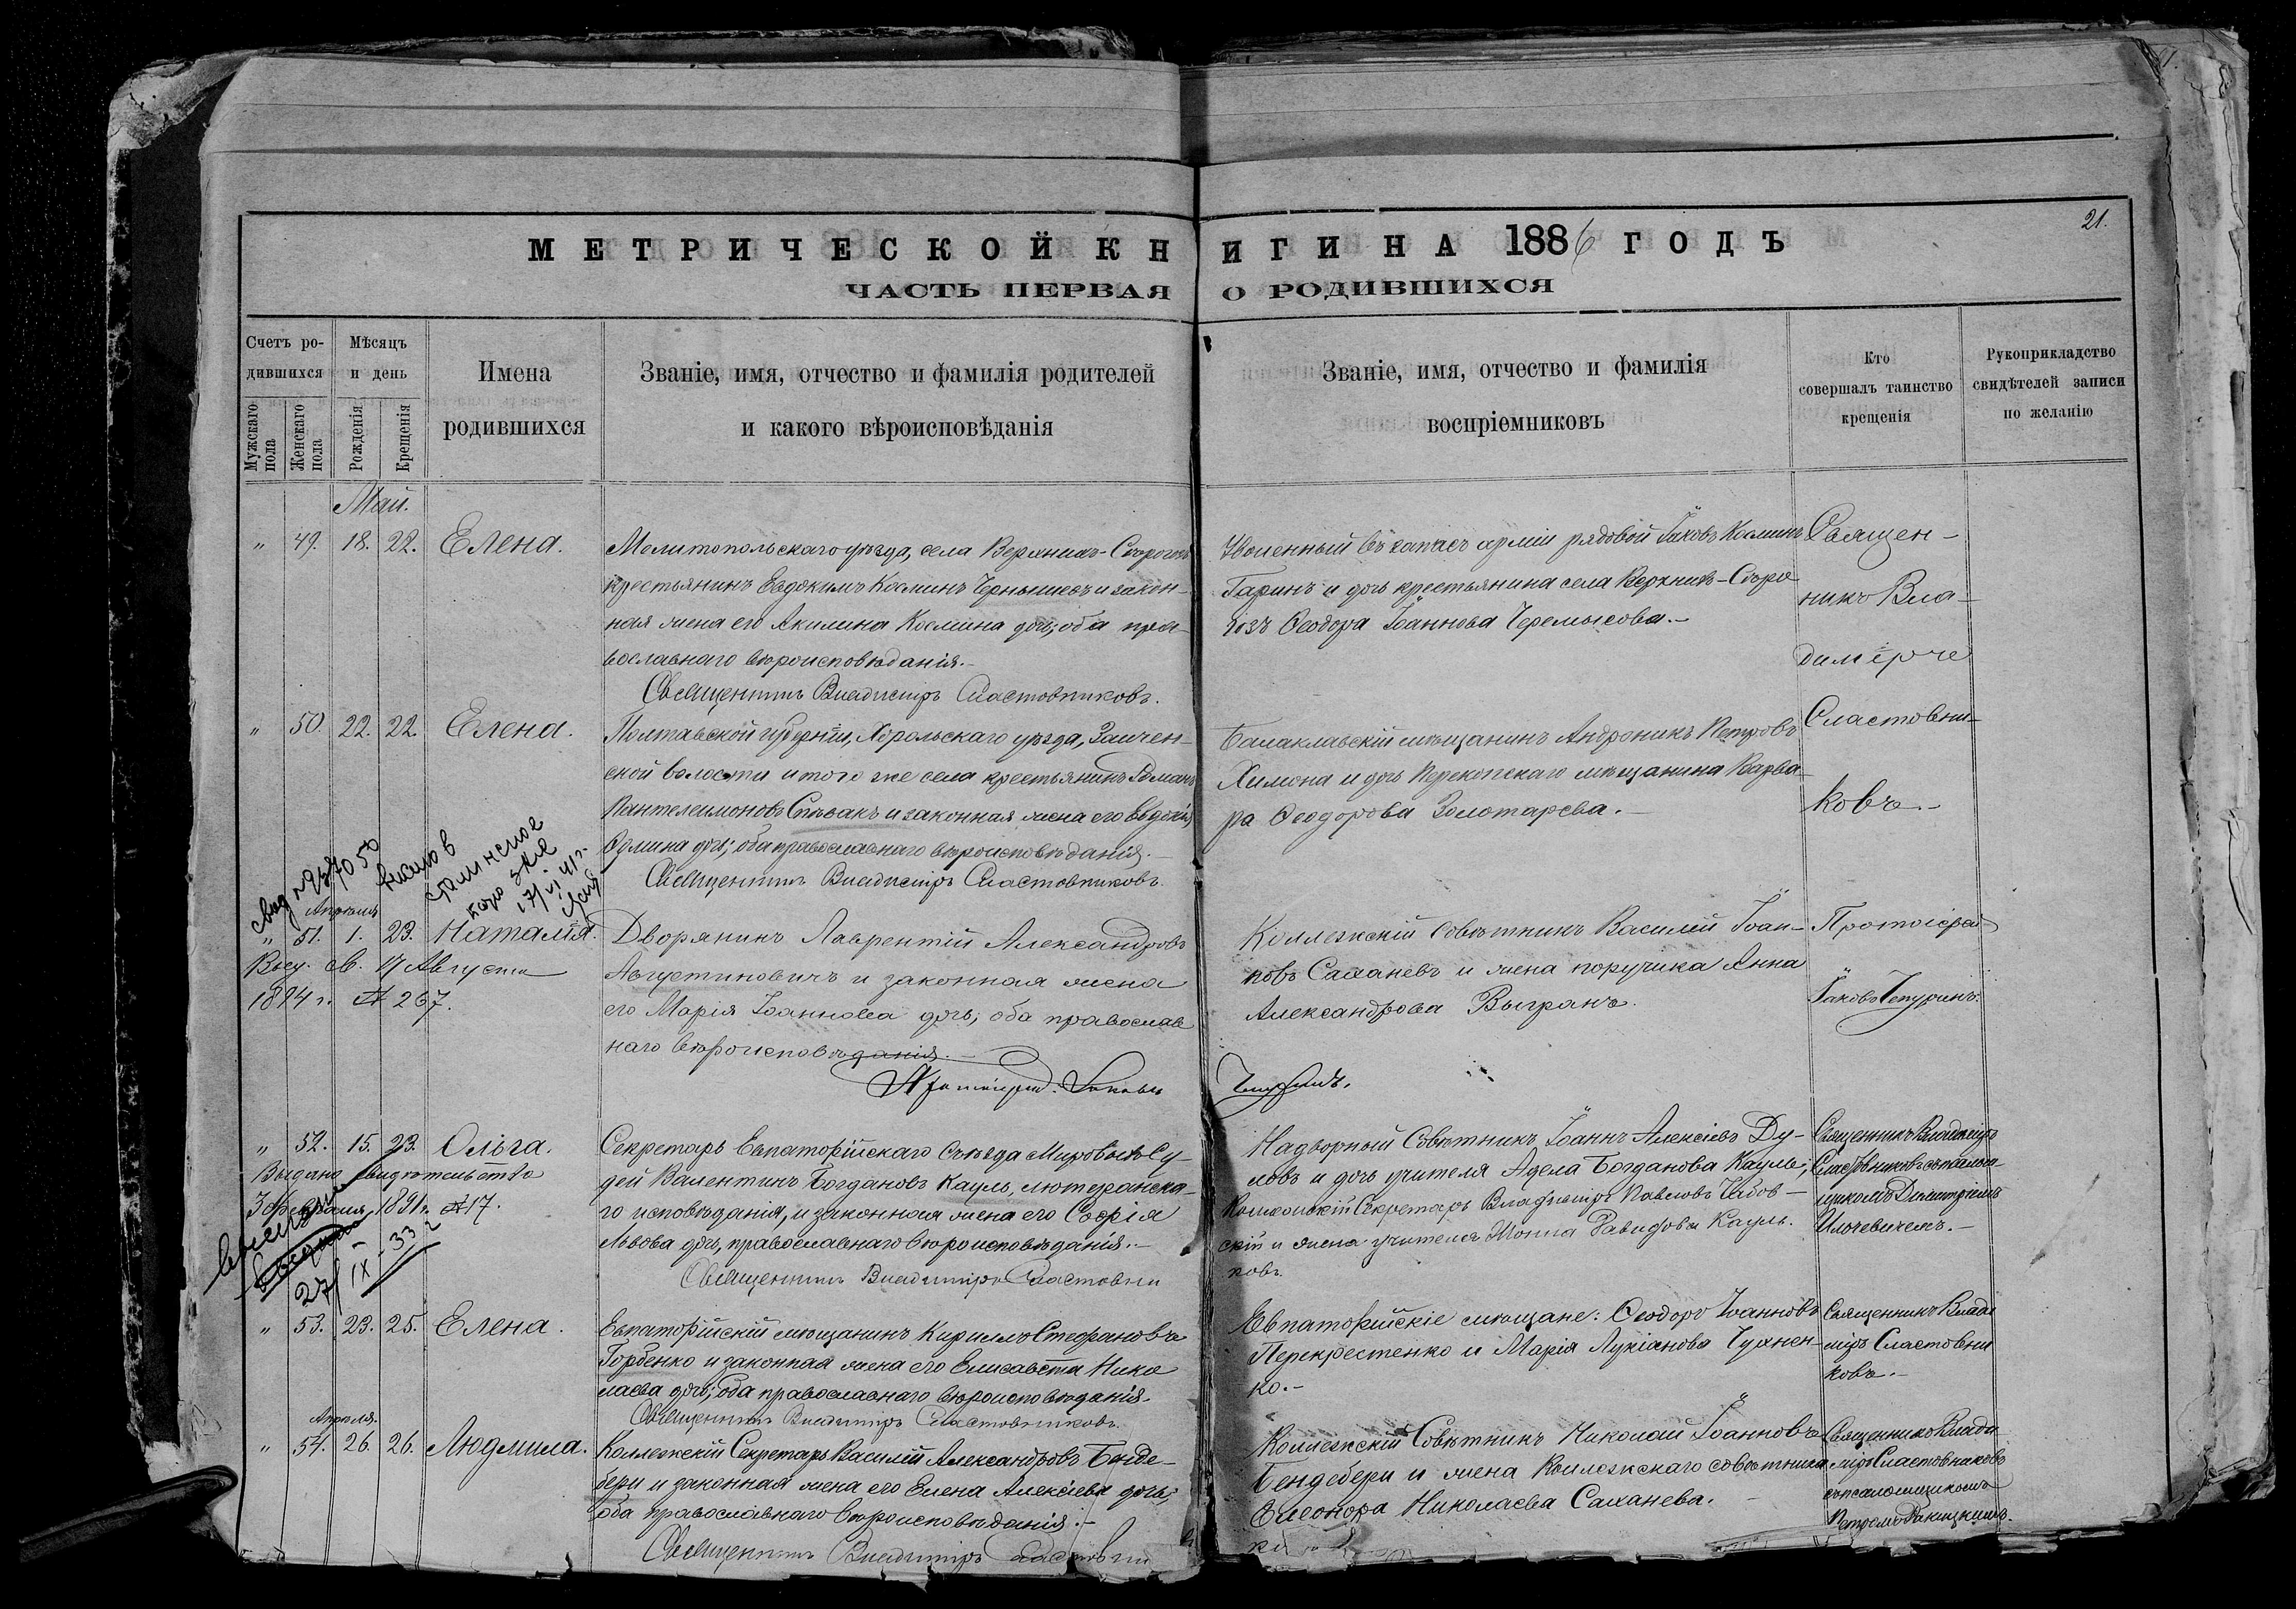 МЕТРИЧЕСКОЙ КНИГИ НА 1886 ГОДЪ
21.
ЧАСТЬ ПЕРВАЯ О РОДИВШИХСЯ
Счетъ ро-
дившихся
Мужскаго пола
Женскаго пола
Мѣсяцъ
и день
Рожденія
Крещенія
Имена
родившихся
Званіе, имя, отчество и фамилія родителей
и какого вѣроисповѣданія
Званіе, имя, отчество и фамилія
воспріемниковъ
Кто
совершалъ таинство
крещенія
Рукоприкладство
свидѣтелей записи
по желанію
Май.
" 49. 18. 22. Елена.
Мелитопольскаго уѣзда, села Верхнихъ-Сѣрогозъ
крестьянинъ Евдокимъ Косминъ Чернышевъ и закон-
ная жена его Акилина Космина дочь; оба пра-
вославнаго вѣроисповѣданія.-
Священникъ Владиміръ Сластовниковъ.
Уволенный въ запасъ арміи рядовой Іаковъ Косминъ
Гаринъ и дочь крестьянина села Верхнихъ-Сѣро-
гозъ Ѳеодора Іоаннова Черемысова.-
Священ-
никъ Вла-
диміръ
Сластовни-
ковъ.-
" 50. 22. 22. Елена.
Полтавской губерніи, Хорольскаго уѣзда,
ской волости и того же села крестьянинъ Романъ
Пантелеимоновъ Спѣвакъ и законная жена его Евдокія
дочь; оба православнаго вѣроисповѣданія.-
Священникъ Владиміръ Сластовниковъ.
Балаклавскій мѣщанинъ Андроникъ Петровъ
Химона и дочь Перекопскаго мѣщанина Варва-
ра Ѳеодорова Золотарева.-
Апрѣля
" 51. 1. 23. Наталія.
Выд. св. 17 Августа
1894 г. № 267.
Дворянинъ Лаврентій Александровъ
Августиновичъ и законная жена
его Марія Іоаннова дочь; оба православ
наго вѣроисповѣданія.-
Протоіерей Іаковъ
Чепуринъ.
Коллежскій Совѣтникъ Василій Іоан-
новъ Саханевъ и жена поручика Анна
Александрова Выгранъ.
Протоіерей
Іаковъ Чепуринъ.
" 52. 15. 23. Ольга.
Выдано свидѣтельство
3 Февраля 1891 г. №17.
27/IX-33 г
Секретарь Евпаторійскаго Съѣзда Мировыхъ Су-
дей Валентинъ Богдановъ Кауль, лютеранска-
го исповѣданія, и законная жена его Софія
Львова дочь, православнаго вѣроисповѣданія.-
Священникъ Владиміръ Сластовни
ковъ.
Надворный Совѣтникъ Іоаннъ Алексіевъ Ду-
ловъ и дочь учителя Адела Богданова Кауль;
Коллежскій Секретарь Владиміръ Павловъ
скій и жена учителя Давидова Кауль.
Священникъ Владиміръ
Сластовниковъ съ псалом-
щикомъ Димитріемъ
Илючевичемъ.-
" 53. 23. 25. Елена.
Евпаторійскій мѣщанинъ Кириллъ Стефановъ
Горбенко и законная жена его Елисавета Нико
лаева дочь; оба православнаго вѣроисповѣданія.
Священникъ Владиміръ Сластовниковъ.
Евпаторійскіе мѣщане: Ѳеодоръ Іоанновъ
Перекрестенко и Марія Лукіанова Чухнен-
ко.-
Священникъ Влади
міръ Сластовни
ковъ.-
Апрѣля.
" 54. 26. 26. Людмила.
Коллежскій Секретарь Василій Александровъ Бенде-
бери и законная жена его Елена Алексіева дочь;
оба православнаго вѣроисповѣданія.-
Священникъ Владиміръ Сластовни
Коллежскій Совѣтникъ Николай Іоанновъ
Бендебери и жена Коллежскаго совѣтника
Елеонора Николаева Саханева.
Священникъ Влади
міръ Сластовниковъ
съ псаломщикомъ